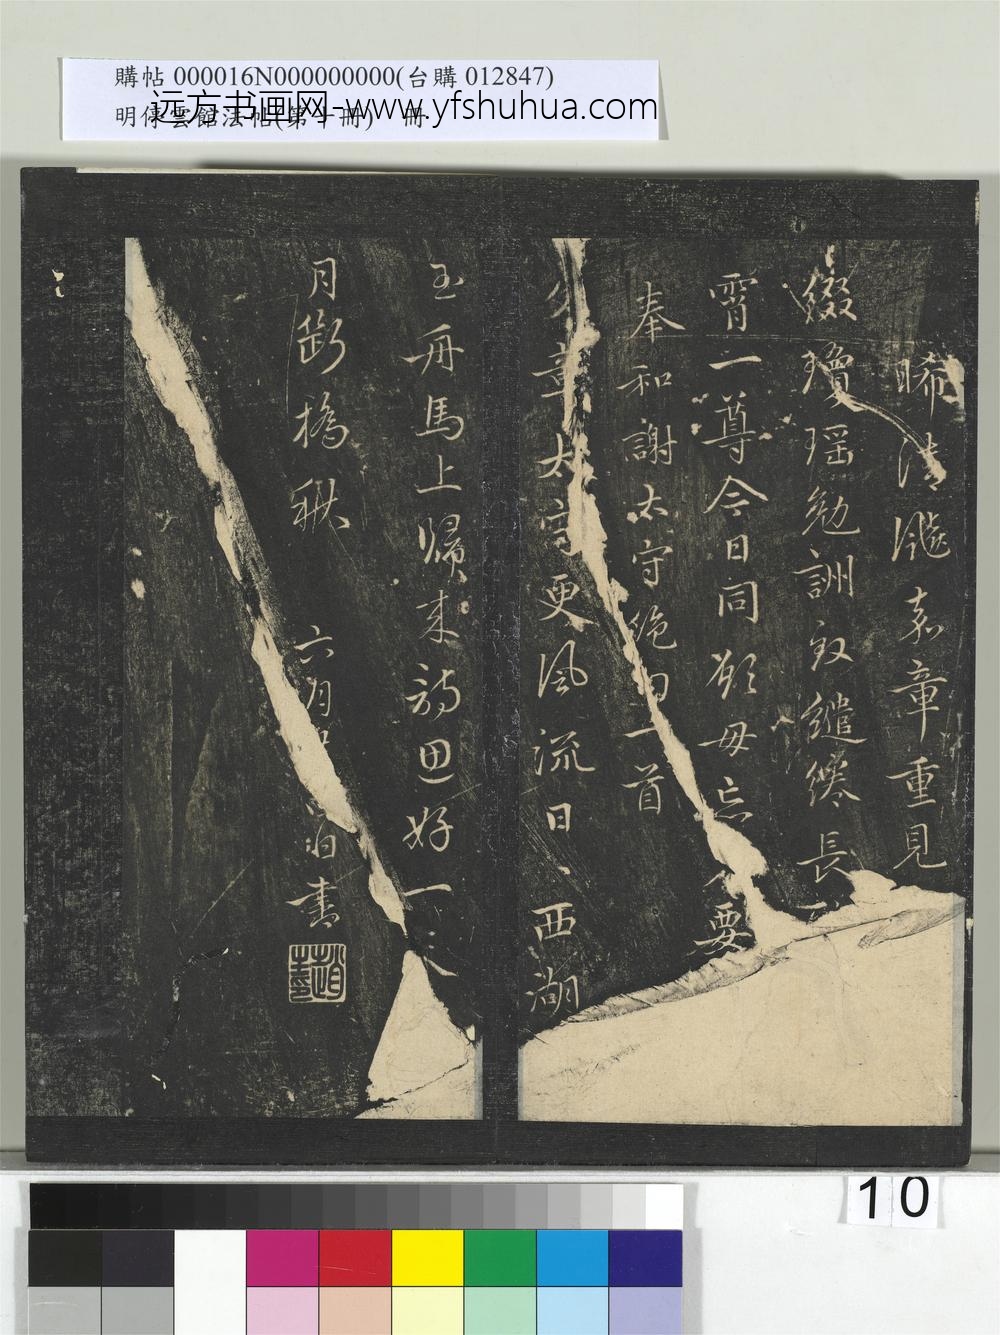 購帖 000016N000000000(台購 012847)
明停雲館法帖(第十冊) 冊
远方书画网-www.yfshuhua.com
晞清飈嘉章重見
綴瓊瑶勉詶叙繾綣長
霄一尊今日同願毋忘要
奉和謝太守絶句一首
章太守更風流日、西湖
玉舟馬上歸来詩思好一天
月断橋秋
六月
泊書
10